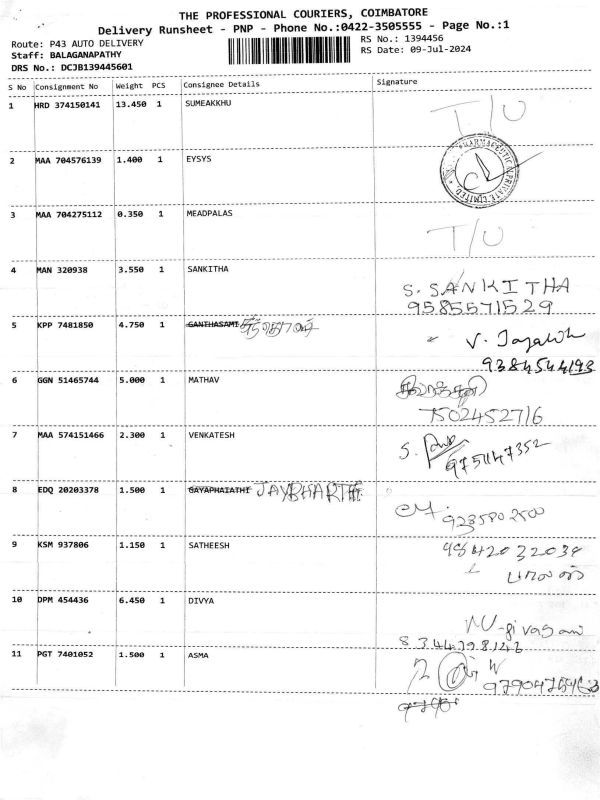 THE PROFESSIONAL COURIERS, COIMBATORE
Delivery Runsheet - PNP - Phone No.:0422-3505555 - Page No.:1
Route: P43 AUTO DELIVERY RS No.: 1394456
Staff: BALAGANAPATHY RS Date: 09-Jul-2024
DRS No.: DCJB139445601
S No Consignment No Weight PCS Consignee Details Signature
1 HRD 374150141 13.450 1 SUMEAKKHU T/U
2 MAA 704576139 1.400 1 EYSYS
PRIVATE LIMITED
3 MAA 704275112 0.350 1 MEADPALAS T/U
4 MAN 320938 3.550 1 SANKITHA S. SANKITHA
9585571529
5 KPP 7481850 4.750 1 GANTHASAMI
9384544193
6 GGN 51465744 5.000 1 MATHAV
7502452716
7 MAA 574151466 2.300 1 VENKATESH S.
9751147352
8 EDQ 20203378 1.500 1 GAYAPHAIATHI JAYBHARTHI
9 KSM 937806 1.150 1 SATHEESH 9842032038
பாலன்
10 DPM 454436 6.450 1 DIVYA
11 PGT 7401052 1.500 1 ASMA